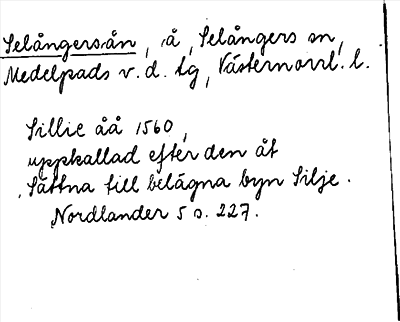 Selångersån, å, Selångers sn,
Medelpads v. d. tg, Västernorrl. l.
Sillie åå 1560,
uppkallad efter den åt
Sättna till belägna byn Silje.
Nordlander 5 s. 227.